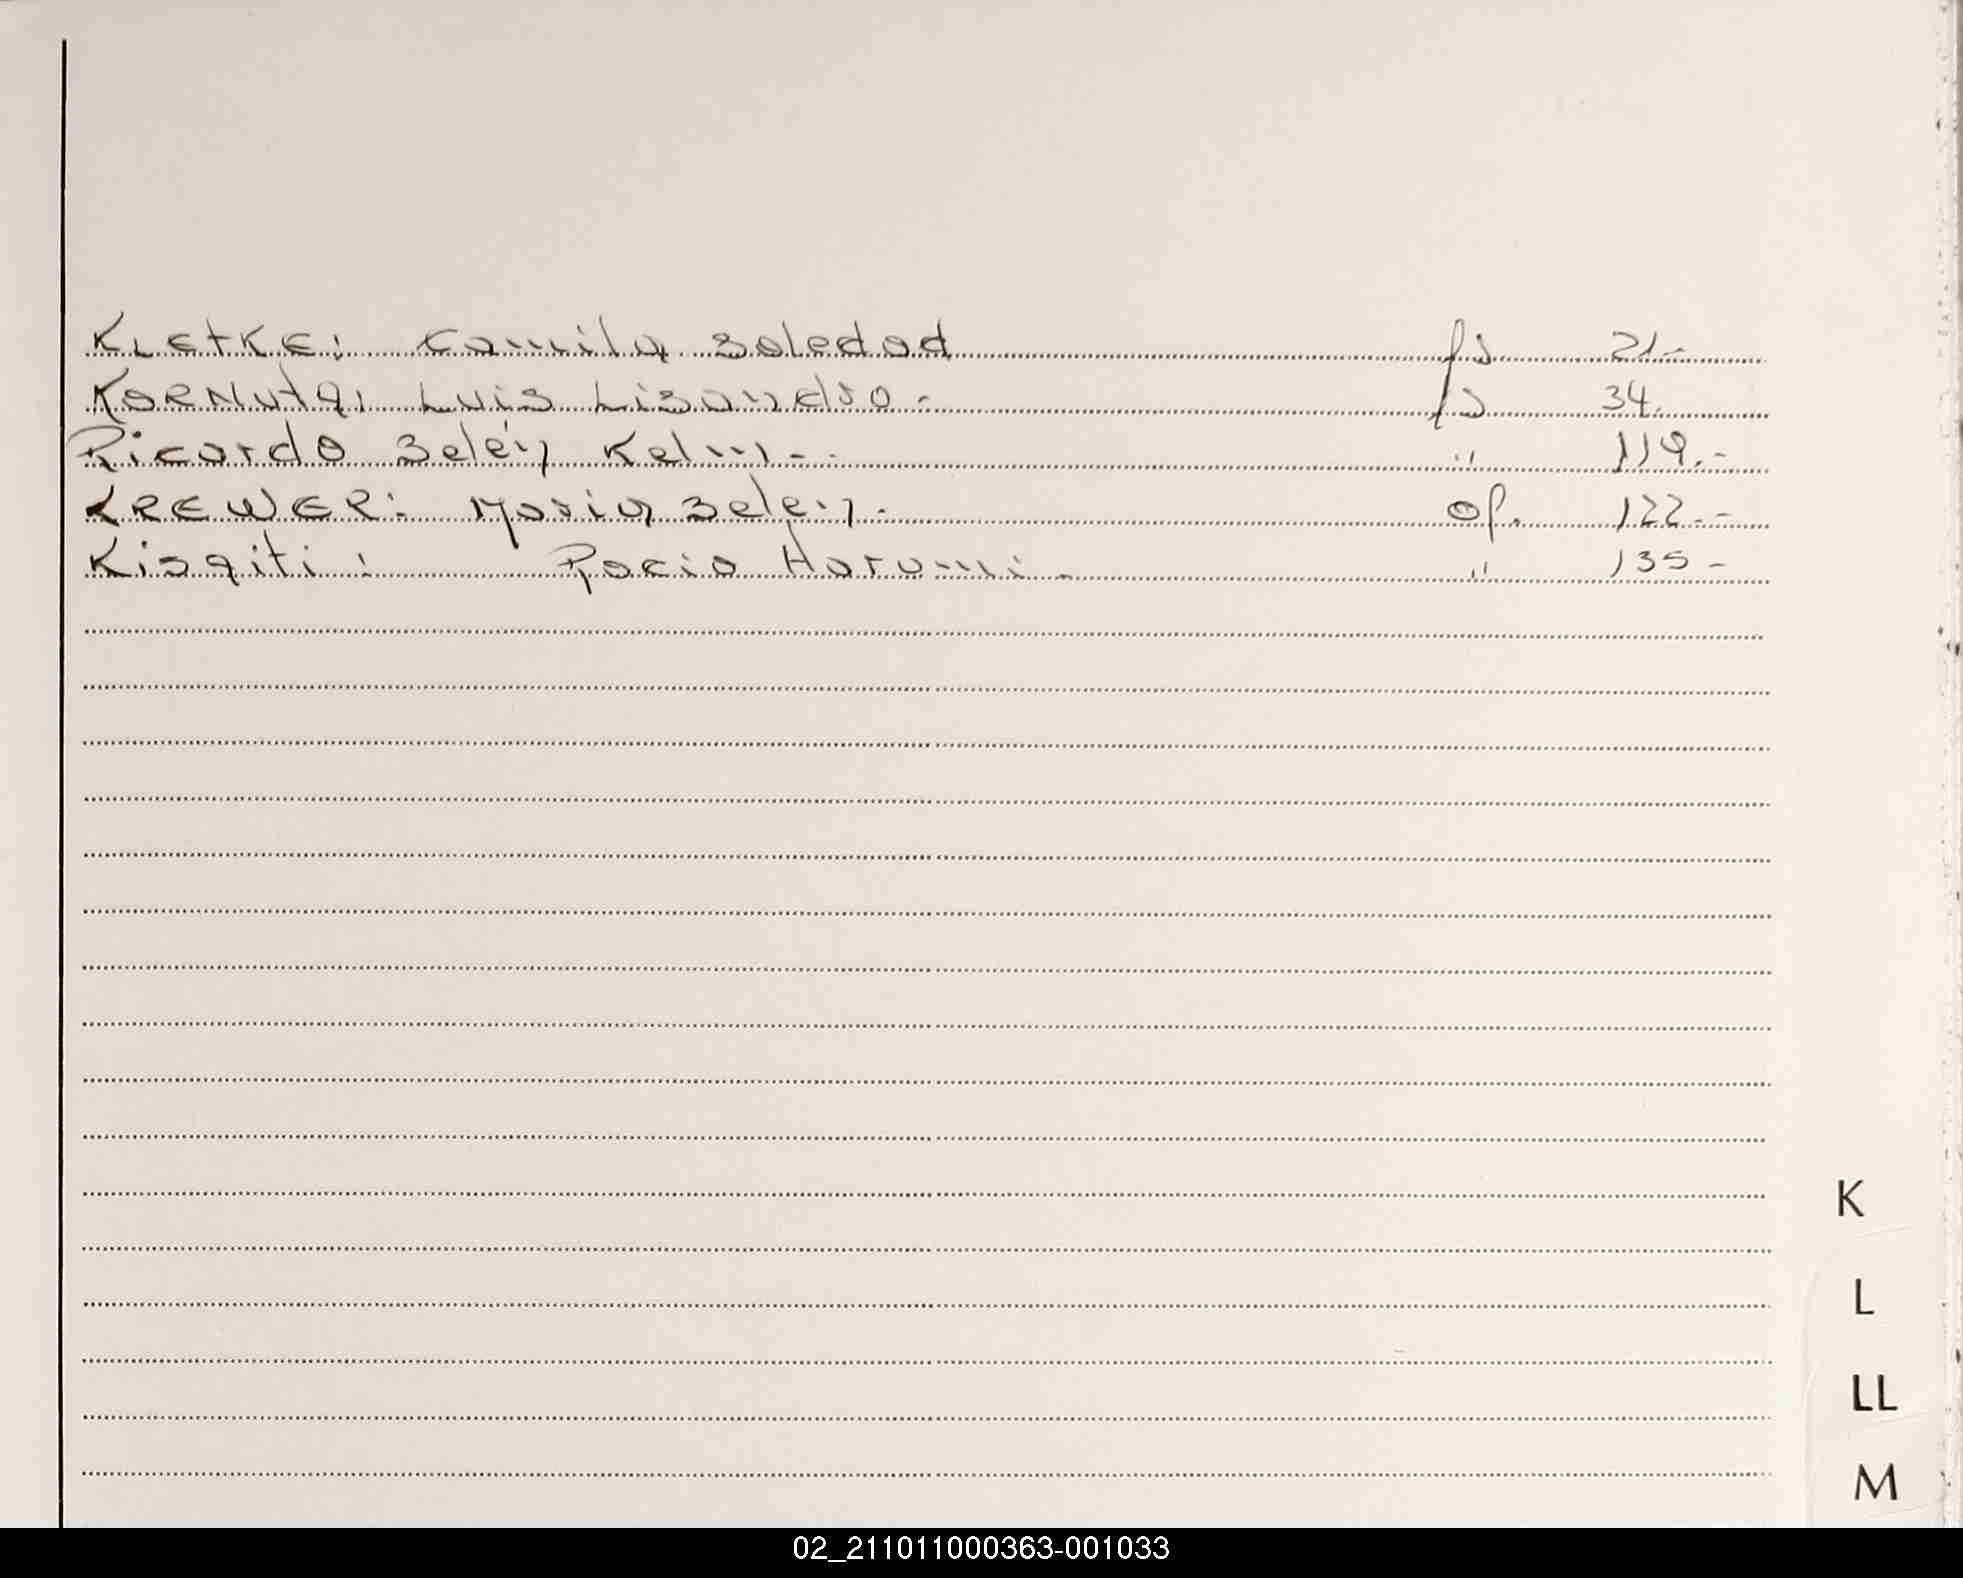 KLETKE: Camila Soledad fs 21.-
KORNUTA: Luis Lisandro.- fs 34.
Ricardo Belén Kelm.-. " 119.-
KREWER: María Belen.- of. 122.--
Kisaiti: Rocio Harumi.- " 135-
K
L
LL
M
02_211011000363-001033